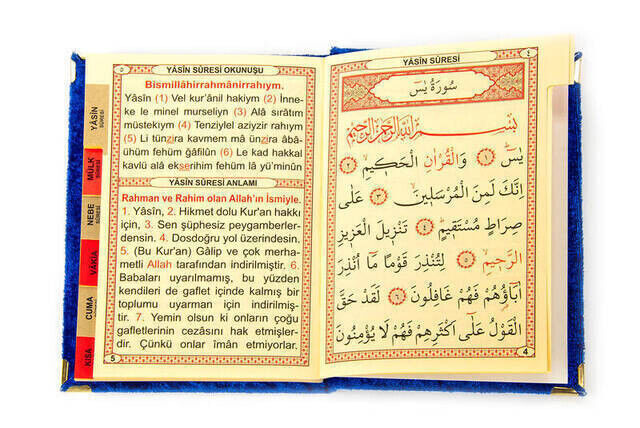 YÂSİN SÛRESİ
MÜLK
SÛRESİ
NEBE
SÛRESİ
VÂKIA
CUMA
KISA
٥
YÂSİN SÛRESİ OKUNUŞU
Bismillâhirrahmânirrahıym.
Yâsîn (1) Vel kur'ânil hakiym (2) İnne-
ke le minel murseliyn (3) Alâ sırâtım
müstekıym (4) Tenziylel aziyzir rahıym
(5) Li tünzira kavmem mâ ünzira âbâ-
ühüm fehüm ğâfilûn (6) Le kad hakkal
kavlü alâ ekserihim fehüm lâ yü'minûn
YÂSİN SÛRESİ ANLAMI
Rahman ve Rahim olan Allah'ın İsmiyle.
1. Yâsîn, 2. Hikmet dolu Kur'an hakkı
için, 3. Sen şüphesiz peygamberler-
densin. 4. Dosdoğru yol üzerindesin.
5. (Bu Kur'an) Gâlip ve çok merha-
metli Allah tarafından indirilmiştir. 6.
Babaları uyarılmamış, bu yüzden
kendileri de gaflet içinde kalmış bir
toplumu uyarman için indirilmiş-
tir. 7. Yemin olsun ki onların çoğu
gafletlerinin cezasını hak etmişler-
dir. Çünkü onlar îmân etmiyorlar.
5
YÂSİN SÛRESİ
٤
سُورَةُ يٰسٓ
بِسْمِ اللهِ الرَّحْمٰنِ الرَّحِيمِ
يٰسٓ ﴿١﴾ وَالْقُرْاٰنِ الْحَكِيمِ ﴿٢﴾
اِنَّكَ لَمِنَ الْمُرْسَلِينَ ﴿٣﴾ عَلٰى
صِرَاطٍ مُسْتَقِيمٍ ﴿٤﴾ تَنْزِيلَ الْعَزِيزِ
الرَّحِيمِ ﴿٥﴾ لِتُنْذِرَ قَوْمًا مَٓا اُنْذِرَ
اٰبَٓاؤُ۬هُمْ فَهُمْ غَافِلُونَ ﴿٦﴾ لَقَدْ حَقَّ
الْقَوْلُ عَلٰٓى اَكْثَرِهِمْ فَهُمْ لَا يُؤْمِنُونَ
4